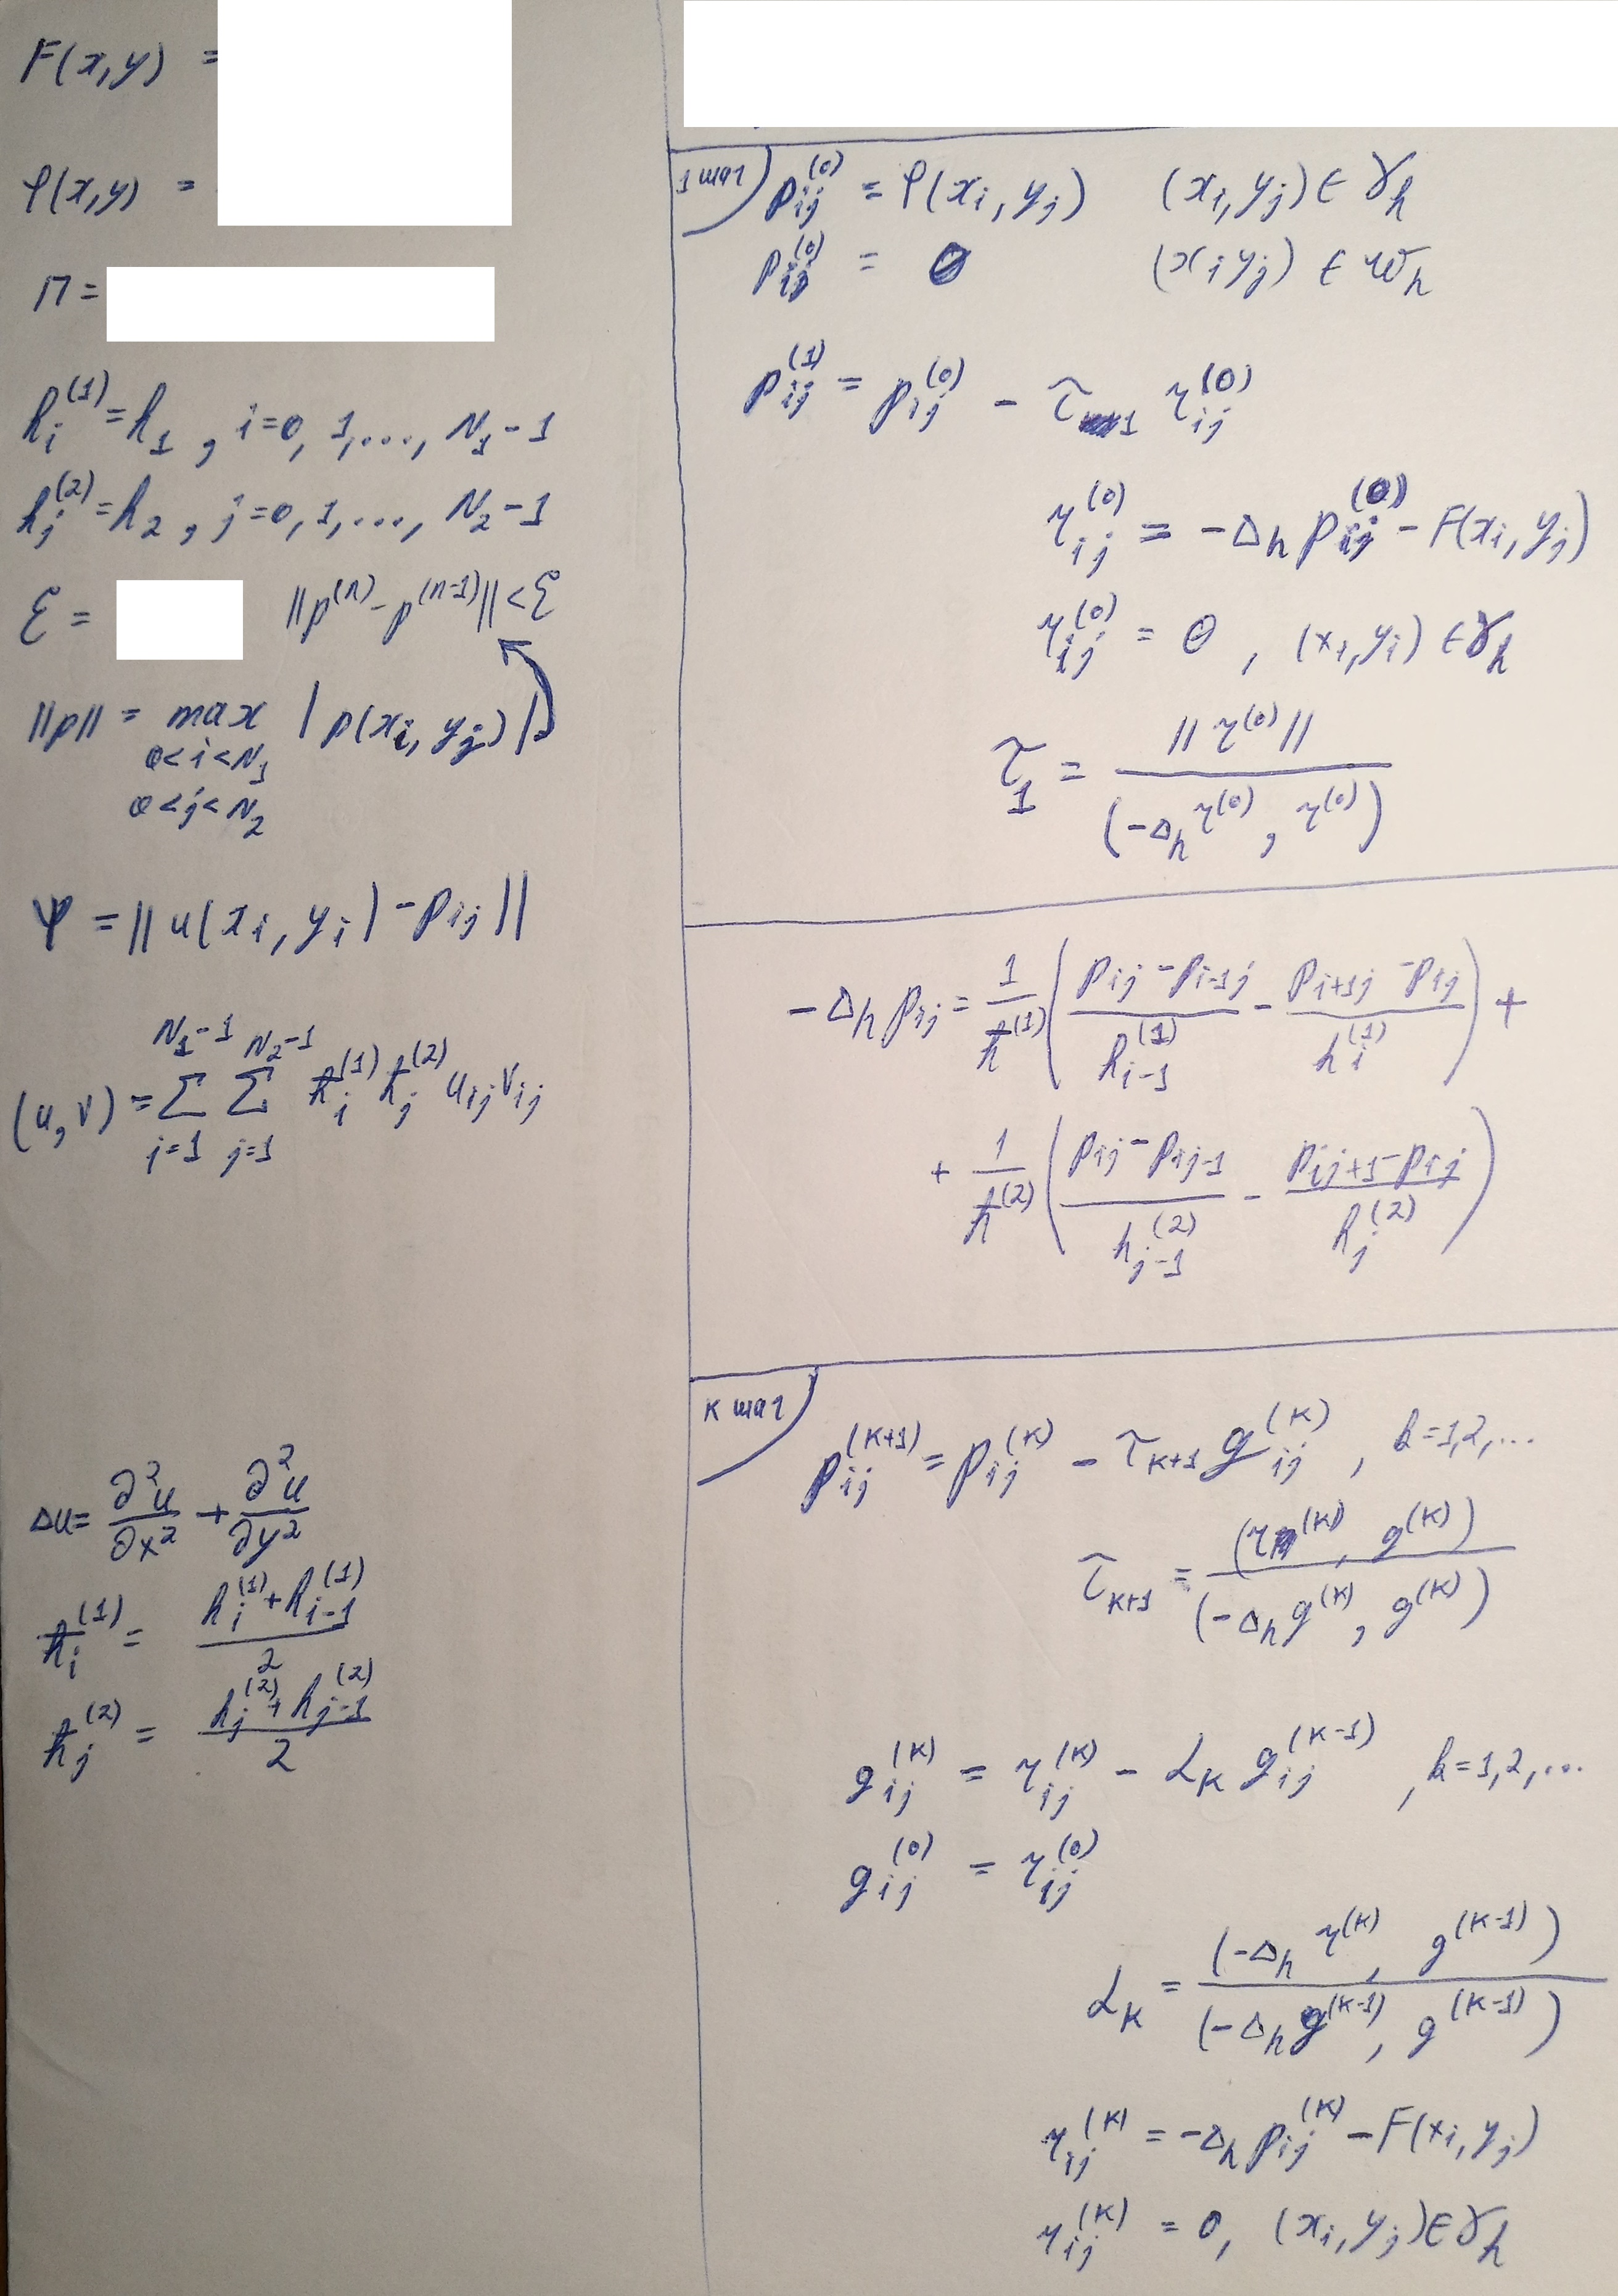 F(x,y) =
φ(x,y) =
Π =
h_i^(1) = h_1 , i=0, 1,..., N_1-1
h_j^(2) = h_2 , j=0,1,..., N_2-1
ε = ||p^(n) - p^(n-1)|| < ε
||p|| = max | p(x_i, y_j) |
0<i<N_1
0<j<N_2
ψ = || u(x_i, y_i) - p_ij ||
(u,v) = Σ_{i=1}^{N_1-1} Σ_{j=1}^{N_2-1} ħ_i^(1) ħ_j^(2) u_ij v_ij
Δu = ∂²u/∂x² + ∂²u/∂y²
ħ_i^(1) = (h_i^(1) + h_{i-1}^(1)) / 2
ħ_j^(2) = (h_j^(2) + h_{j-1}^(2)) / 2
1 шаг
p_ij^(0) = φ(x_i, y_j) (x_i, y_j) ∈ γ_h
p_ij^(0) = 0 (x_i y_j) ∈ ω_h
p_ij^(1) = p_ij^(0) - τ_1 r_ij^(0)
r_ij^(0) = -Δ_h p_ij^(0) - F(x_i, y_j)
r_ij^(0) = 0 , (x_i, y_i) ∈ γ_h
τ_1 = || r^(0) || / (-Δ_h r^(0), r^(0))
-Δ_h p_ij = 1/ħ^(1) ( (p_ij - p_{i-1j})/h_{i-1}^(1) - (p_{i+1j} - p_ij)/h_i^(1) ) +
+ 1/ħ^(2) ( (p_ij - p_{ij-1})/h_{j-1}^(2) - (p_{ij+1} - p_ij)/h_j^(2) )
к шаг
p_ij^(k+1) = p_ij^(k) - τ_{k+1} g_ij^(k) , k=1,2,...
τ_{k+1} = (r^(k), g^(k)) / (-Δ_h g^(k), g^(k))
g_ij^(k) = r_ij^(k) - α_k g_ij^(k-1) , k=1,2,...
g_ij^(0) = r_ij^(0)
α_k = (-Δ_h r^(k), g^(k-1)) / (-Δ_h g^(k-1), g^(k-1))
r_ij^(k) = -Δ_h p_ij^(k) - F(x_i, y_j)
r_ij^(k) = 0, (x_i, y_j) ∈ γ_h